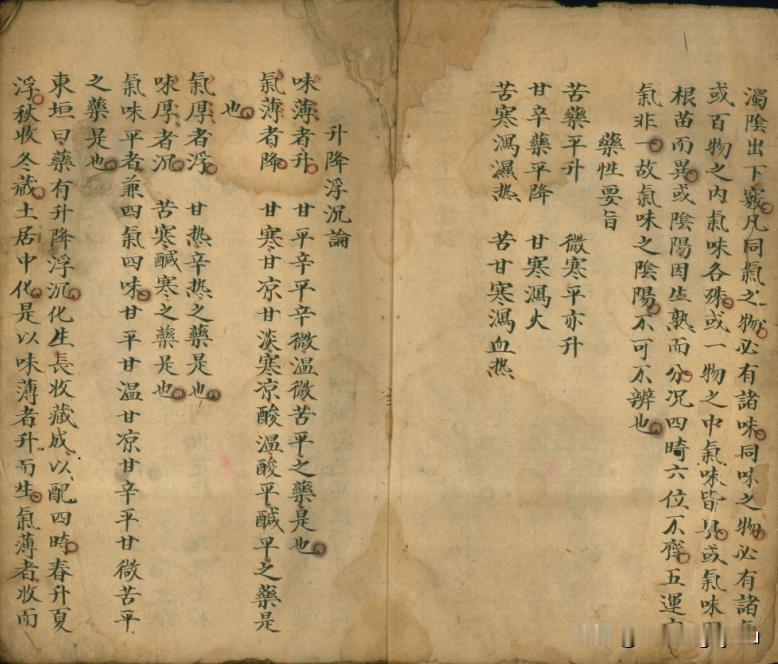 濁陰出下竅凡同氣之物必有諸味同味之物必有諸
或百物之內氣味各殊或一物之中氣味皆異或氣味
根苗而異或陰陽因生熟而分况四時六位不齊五運
氣非一故氣味之陰陽不可不辨也
藥性要旨
苦藥平升 微寒平亦升
甘辛藥平降 甘寒瀉火
苦寒瀉濕热 苦甘寒瀉血热
升降浮沉論
味薄者升 甘平辛平辛微温微苦平之藥是也
氣薄者降 甘寒甘凉甘淡寒凉酸温酸平鹹平之藥是
也
氣厚者浮 甘热辛热之藥是也
味厚者沉 苦寒鹹寒之藥是也
氣味平者兼四氣四味甘平甘温甘凉甘辛平甘微苦平
之藥是也
東垣曰藥有升降浮沉化生長收藏成以配四時春升夏
浮秋收冬藏土居中化是以味薄者升而生氣薄者收而